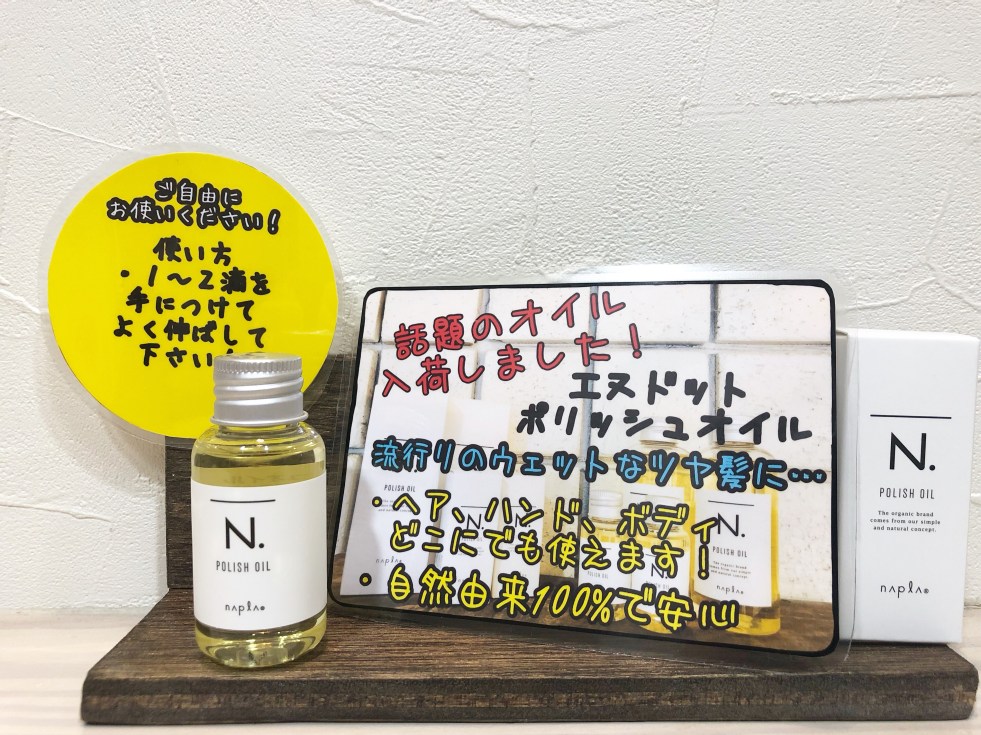 ご自由に
お使いください！
使い方
・1〜2滴を
手につけて
よく伸ばして
下さい！
N.
POLISH OIL
napla®
話題のオイル
入荷しました！
エヌドット
ポリッシュオイル
流行りのウェットなツヤ髪に…
・ヘア、ハンド、ボディ
どこにでも使えます！
・自然由来100%で安心
POLISH OIL
N.
POLISH OIL
N.
POLISH OIL
The organic brand
comes from our simple
and natural concept.
napla®